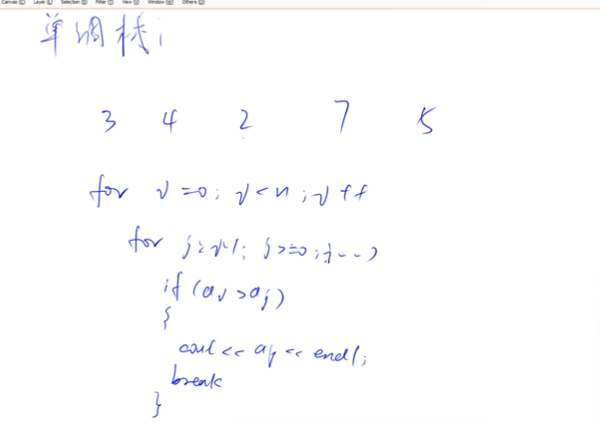 Canvas (C) Layer (L) Selection (S) Filter (T) View (V) Window (W) Others (O)
单调栈;
3 4 2 7 5
for i=0; i<n; i++
for j=i-1; j>=0; j--)
if (ai > aj)
{
cout << aj << endl;
break
}